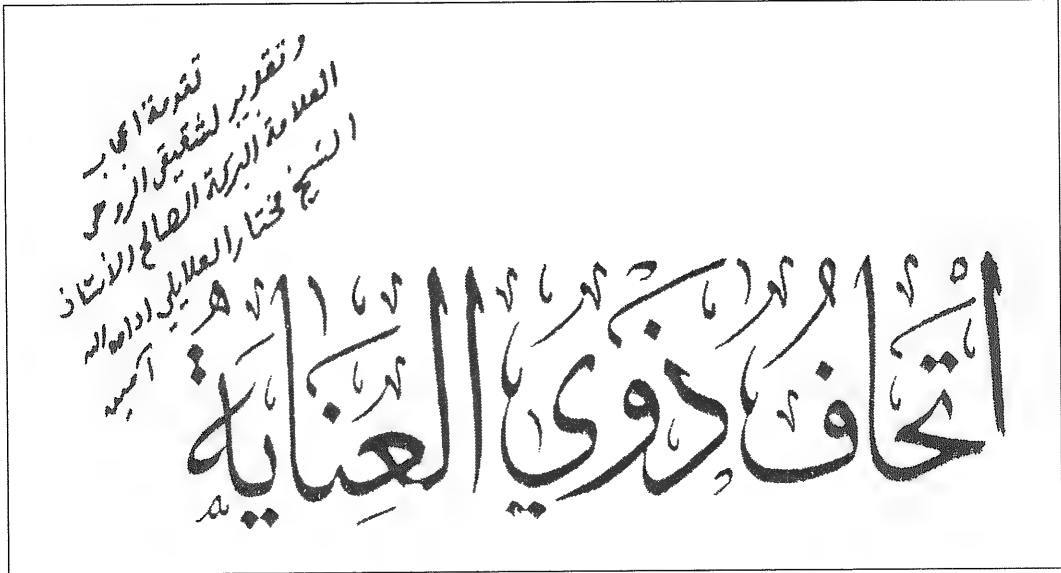 تقدمة اعجاب
وتقدير لشقيقي الروحي
العلامة البركة الصالح الاستاذ
الشيخ مختار العلايلي ادامه الله
آمين
إتحاف ذوي العناية